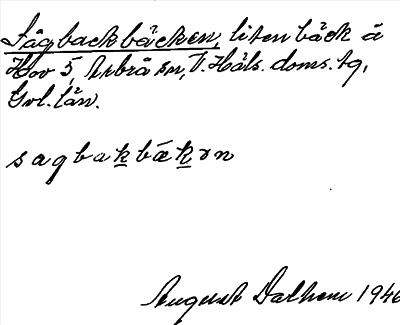 Sågbackbäcken, liten bäck å
Hov 5, Arbrå sn, V. Häls. doms. tg,
Gvl. län.
sagbak̲bäk̲ən
August Dalhem 1946